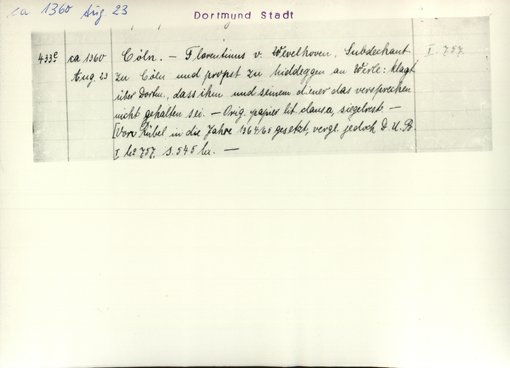 ca 1360 Aug 23
Dortmund Stadt
433e ca 1360 Cöln. – Florentinus v. Wevelhoven, Subdechant I. 757.
Aug. 23 zu Cöln und propst zu Niddeggen an Werle: klagt
über Dortm., dass ihm und seinem diener das versprechen
nicht gehalten sei. – Orig. papier lit. clausa, siegelrest –
(Von Rübel in die Jahre 1364/65 gesetzt, vergl. jedoch D. U. B.
I No 757. S. 545 –